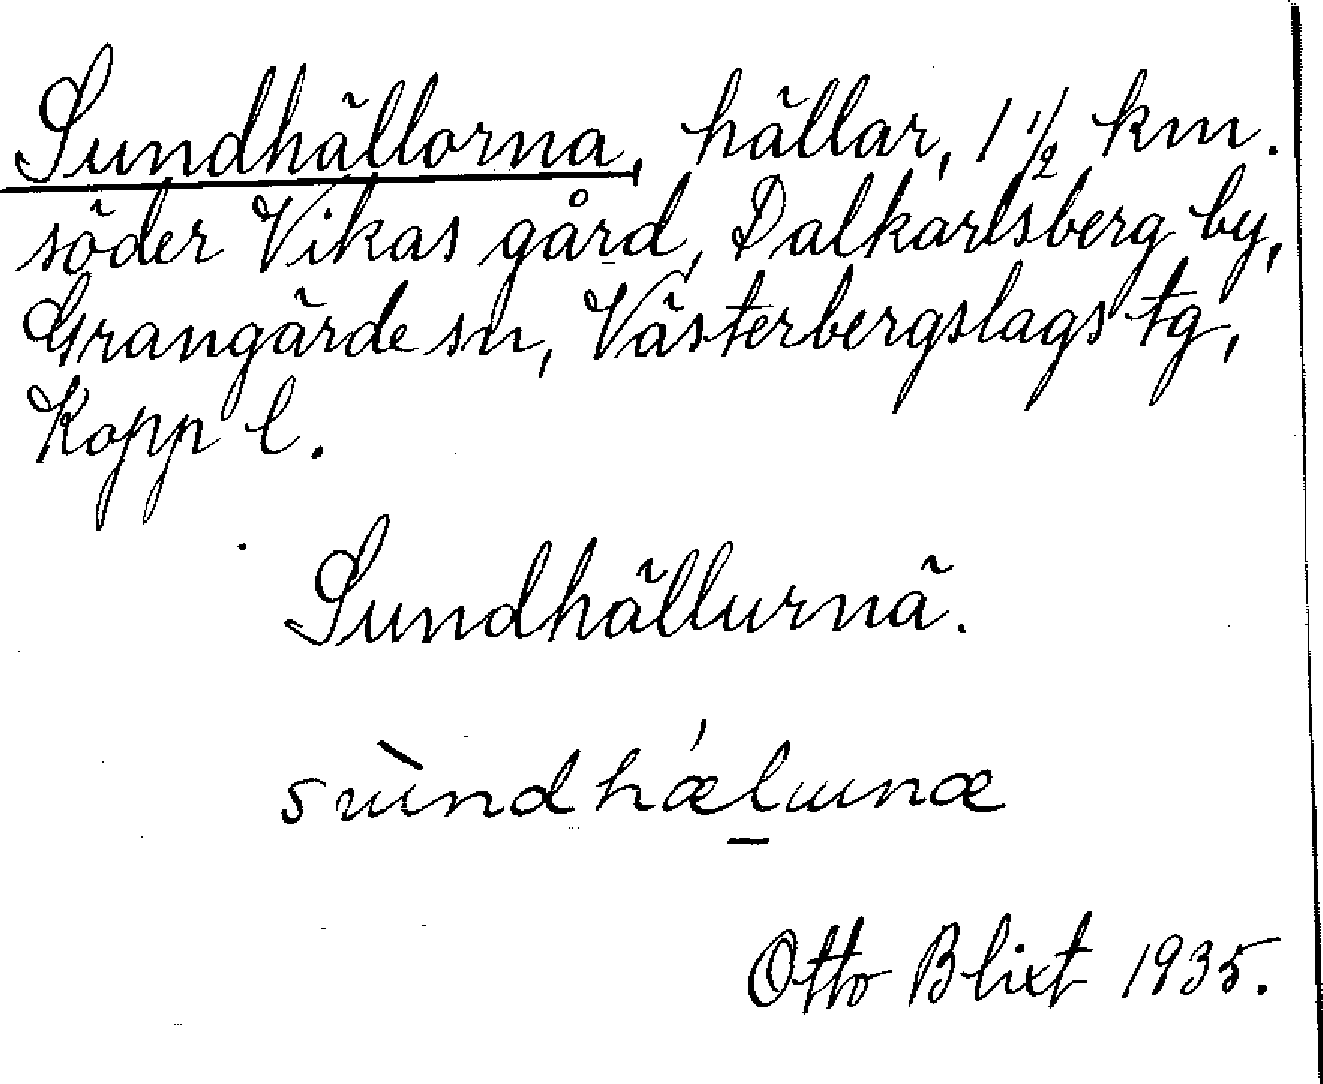 Sundhällorna, hällar, 1 1/2 km.
söder Vikas gård, Dalkarlsberg by,
Grangärde sn, Västerbergslags tg,
Kopp l.
Sundhällurnä.
Otto Blixt 1935.